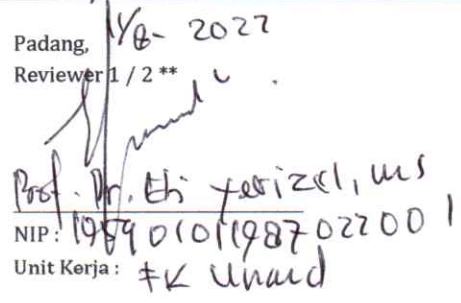 Padang, 1/8- 2022
Reviewer 1 / 2 **
Prof. Dr. Eti Yerizel, MS
NIP : 195901011987022001
Unit Kerja : FK Unand